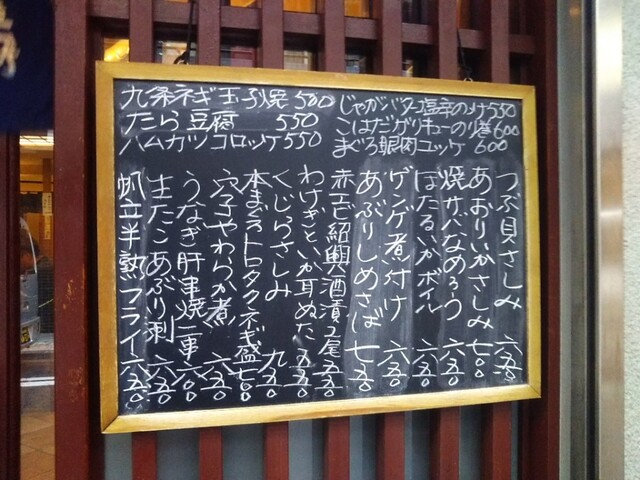 九条ネギ玉子焼 500
たら豆腐 550
ハムカツコロッケ 550
じゃがバター塩辛のっけ 550
こはだガリキューのり巻 600
まぐろ眼肉ユッケ 600
つぶ貝さしみ 六五〇
あおりいかさしみ 七〇〇
焼サバなめろう 六五〇
ほたるいかボイル 六五〇
ゲンゲ煮付け 六五〇
あぶりしめさば 七五〇
赤エビ紹興酒漬2尾 五五〇
わけぎといか耳ぬた 五五〇
くじらさしみ 九五〇
本まぐろトロタクネギ盛 七〇〇
穴子やわらか煮 六五〇
うなぎ肝串焼一串 六〇〇
生たこあぶり刺 六五〇
帆立半熟フライ 六五〇